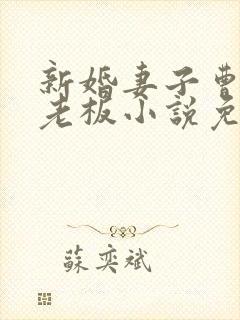 新婚妻子曹
老板小說免
蘇奕斌